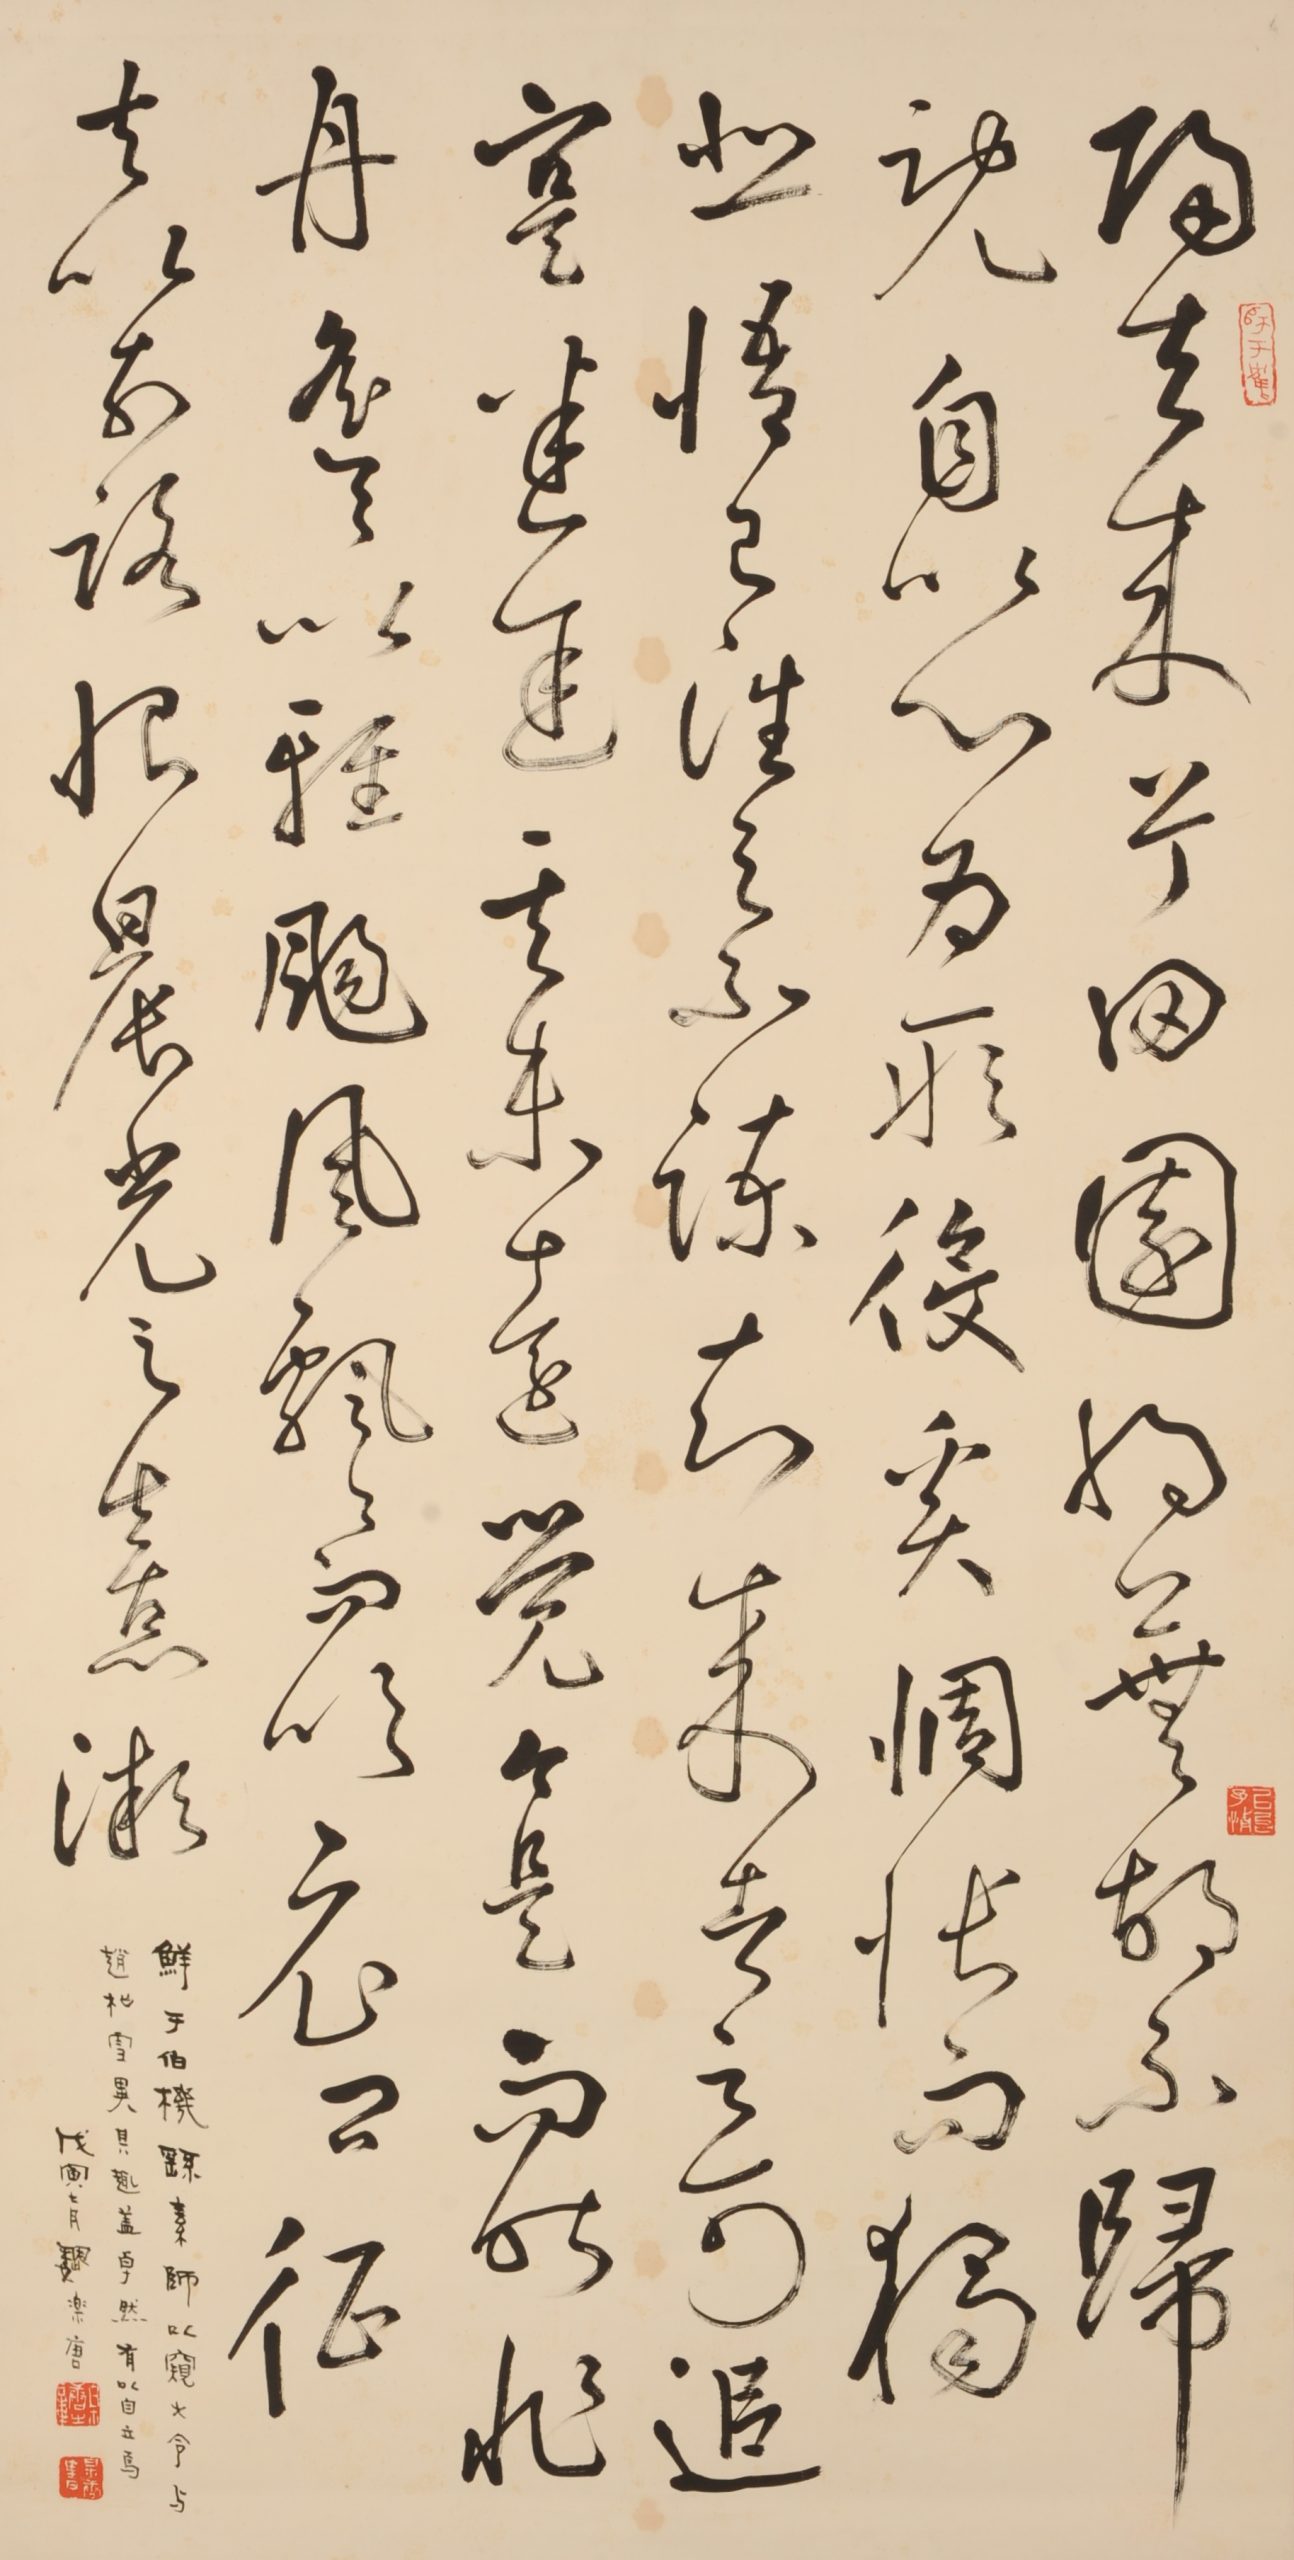 歸去來兮田園將蕪胡不歸
既自以心為形役奚惆悵而獨
悲悟已往之不諫知來者之可追
寔迷途其未遠覺今是而昨非
舟遙々以輕颺風飄々而吹衣問征
夫以前路恨晨光之熹微
鮮于伯機繇素師以窺大令与
趙松雪異其趣蓋卓然有以自立焉
戊寅七月 樂唐